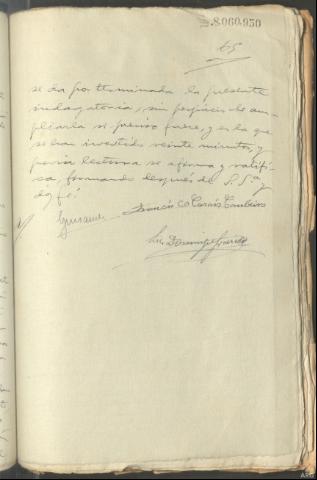 8.060.950
65
se da por terminada la presente
indagatoria, sin perjuicio de am-
pliarla si preciso fuere, y en la que
se han invertido veinte minutos, y
previa lectura se afirma y ratifi-
ca, firmando después de S. Sª y
doy fé
Francisco
Luis Dominguez